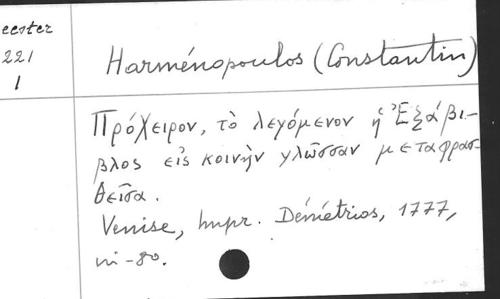 eester
221
1
Harménopoulos (Constantin)
Πρόχειρον, τὸ λεγόμενον ἡ Ἑξάβι-
βλος εἰς κοινὴν γλῶσσαν μεταφρασ-
θεῖσα.
Venise, Impr. Démétrios, 1777,
in-8o.